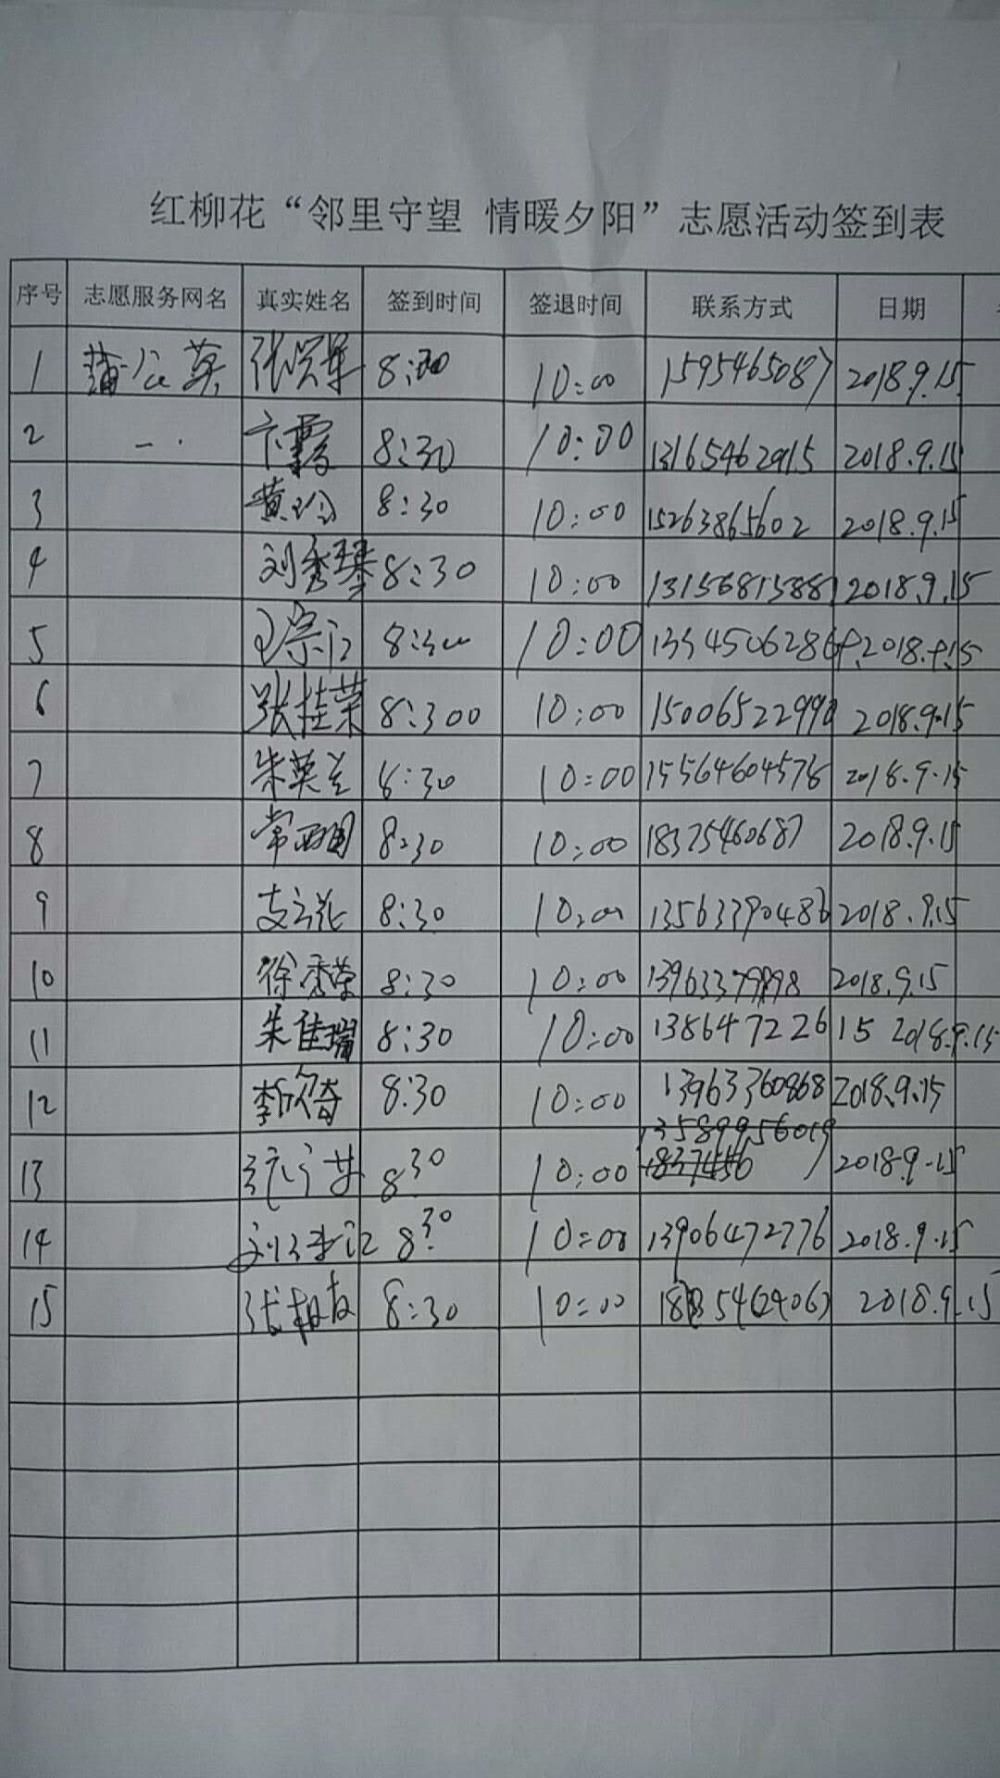 红柳花“邻里守望 情暖夕阳”志愿活动签到表
序号 志愿服务网名 真实姓名 签到时间 签退时间 联系方式 日期
1 蒲公英 8:30 10:00 1595465087 2018.9.15
2 卞露 8:30 10:00 13165462915 2018.9.15
3 黄玲 8:30 10:00 15263865602 2018.9.15
4 刘秀琴 8:30 10:00 13156815881 2018.9.15
5 8:30 10:00 2018.9.15
6 张桂荣 8:300 10:00 15006522990 2018.9.15
7 朱英兰 8:30 10:00 15564604578 2018.9.15
8 常西国 8:30 10:00 18375460687 2018.9.15
9 支立花 8:30 10:00 13563390486 2018.9.15
10 徐秀荣 8:30 10:00 2018.9.15
11 朱佳瑞 8:30 10:00 13864722615 2018.9.15
12 李欣奇 8:30 10:00 13963360868 2018.9.15
13589956019
13 8:30 10:00 2018.9.15
14 8:30 10:00 13906472776 2018.9.15
15 8:30 10:00 2018.9.15